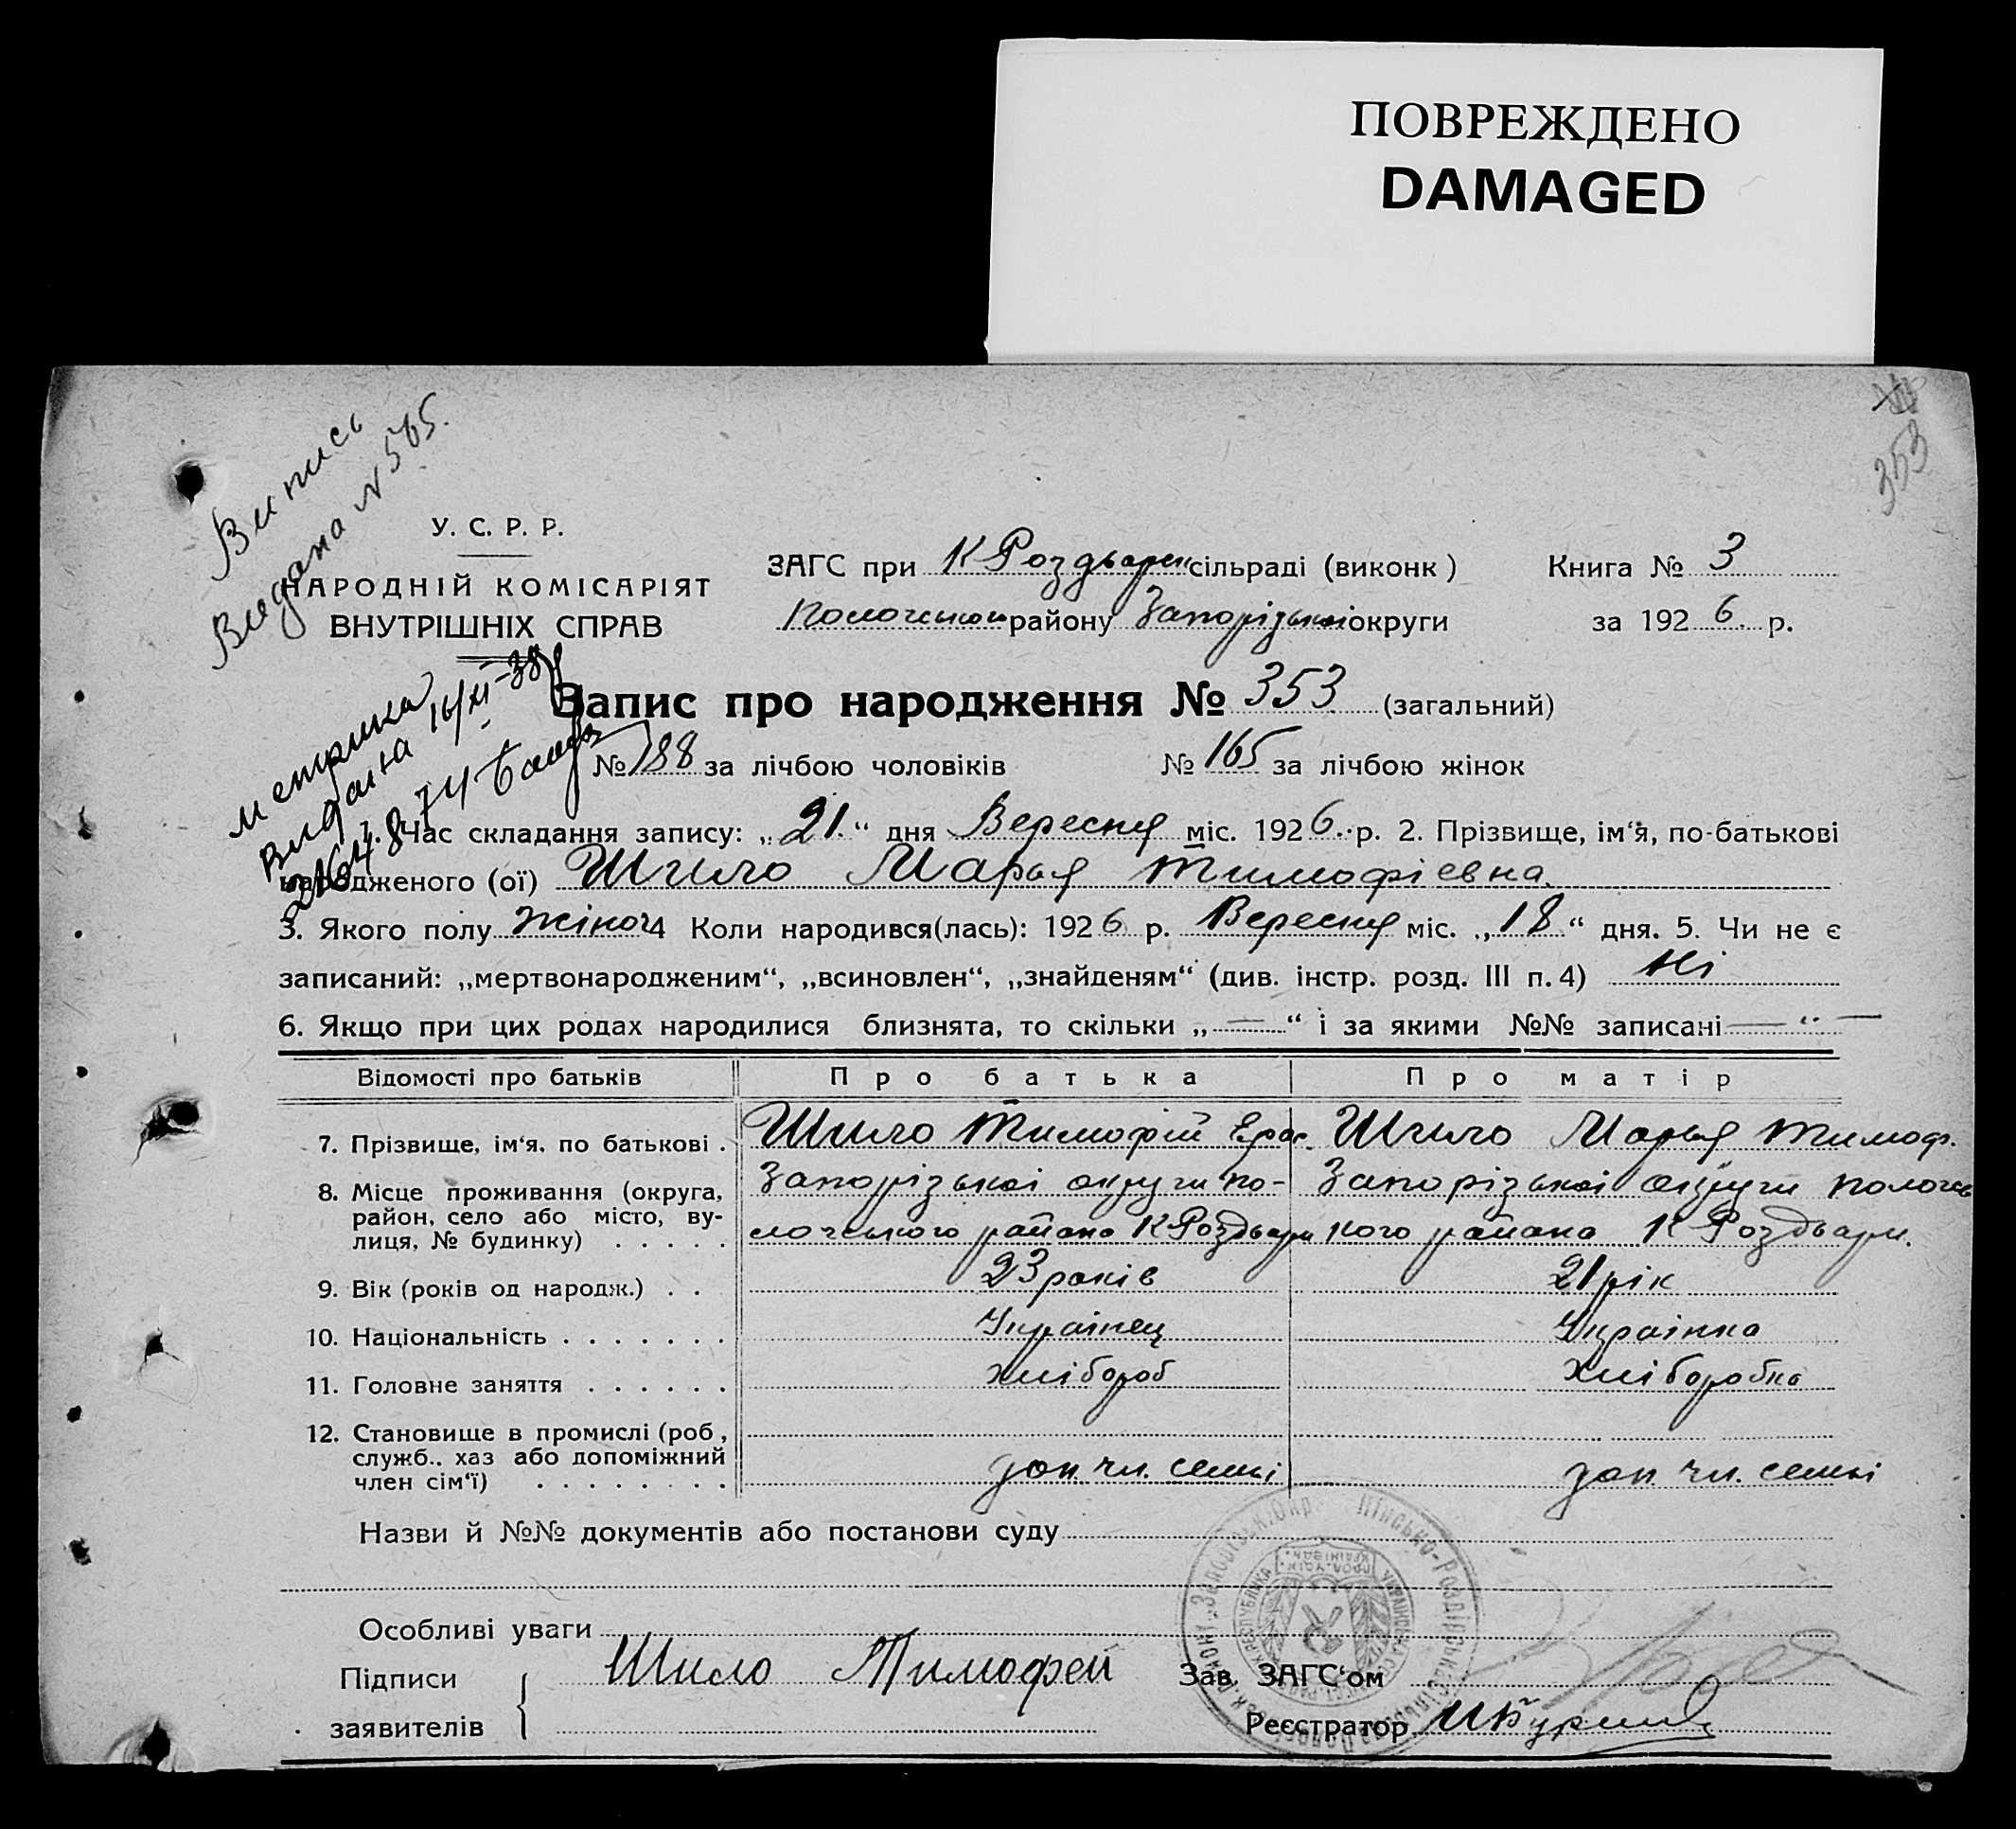 ПОВРЕЖДЕНО
DAMAGED
353
Випись
Видана N 565.
У. С. Р. Р.
НАРОДНІЙ КОМІСАРІЯТ
ВНУТРІШНІХ СПРАВ
ЗАГС при К Роздьорск сільраді (виконк)
Книга № 3
Пологського району Запорізькоі округи
за 1926 р.
метрика
видана 16/XI-38
Запис про народження № 353 (загальний)
№ 188 за лічбою чоловіків № 165 за лічбою жінок
1. Час складання запису: „21.“ дня Вересня міс. 1926. р. 2. Прізвище, ім‘я, по-батькові
народженого (ої) Шило Марья Тимофієвна.
3. Якого полу жіноч 4 Коли народився(лась): 1926 р. Вересня міс. „18“ дня. 5. Чи не є
записаний: „мертвонародженим“, „всиновлен“, „знайденям“ (див. інстр. розд. III п. 4) Ні
6. Якщо при цих родах народилися близнята, то скільки „—“ і за якими №№ записані — “ —
Відомості про батьків Про батька Про матір
7. Прізвище, ім‘я. по батькові . Шило Тимофій Ерас. Шило Марья Тимоф.
8. Місце проживання (округа, Запорізькоі округи По- Запорізькоі округи Пологсь
район, село або місто, ву-
лиця, № будинку) . . . . . логського района К Роздьорн кого района К Роздьорн.
9. Вік (років од народж.) . . 23 років 21 рік
10. Національність . . . . . . . Украінец Украінка
11. Головне заняття . . . . . . хлібороб хліборобка
12. Становище в промислі (роб,
служб.. хаз або допоміжний
член сім‘ї) . . . . . . . . доп. чл. семьі доп. чл. семьі
Назви й №№ документів або постанови суду
Особливі уваги
Підписи Шило Тимофей Зав. ЗАГС‘ом
заявителів Реєстратор